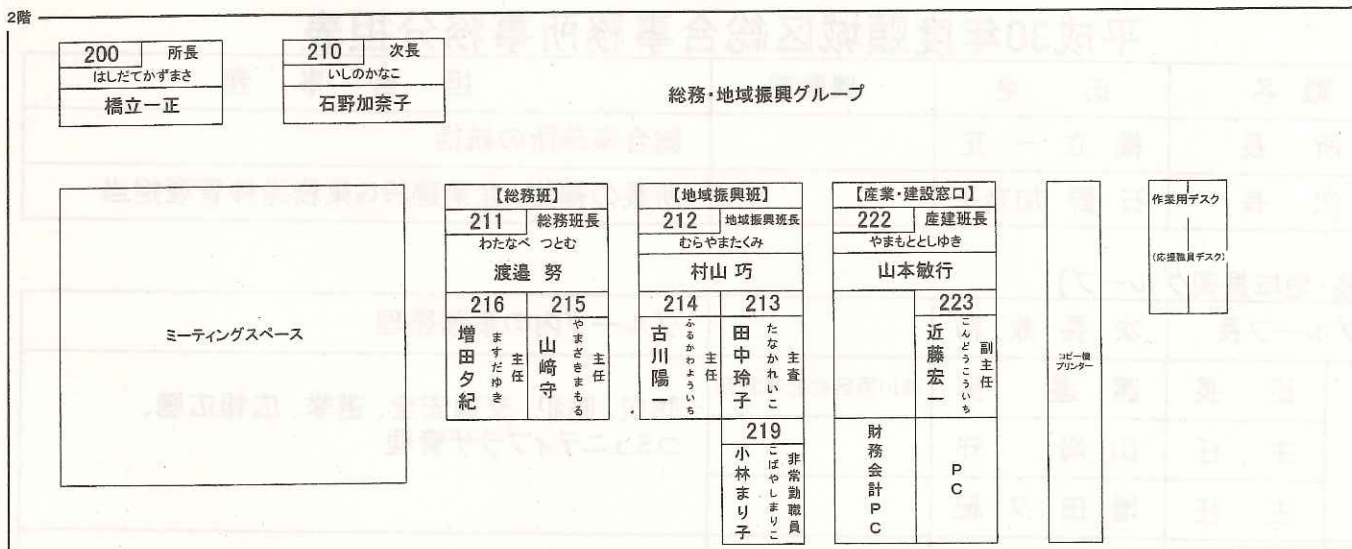 2階
200 所長
はしだてかずまさ
橋立一正
210 次長
いしのかなこ
石野加奈子
総務・地域振興グループ
ミーティングスペース
【総務班】
211 総務班長
わたなべ つとむ
渡邉 努
216
増田夕紀
ますだゆき
主任
215
山﨑守
やまざきまもる
主任
【地域振興班】
212 地域振興班長
むらやまたくみ
村山 巧
214
古川陽一
ふるかわよういち
主任
213
田中玲子
たなかれいこ
主査
219
小林まり子
こばやしまりこ
非常勤職員
【産業・建設窓口】
222 産建班長
やまもととしゆき
山本敏行
223
近藤宏一
こんどうこういち
副主任
財務会計PC
PC
コピー機
プリンター
作業用デスク
(応援職員デスク)
平成30年度頸城区総合事務所事務分担表
職名
氏名
所長
橋立一正
総合事務所の統括
次長
班長
主任
主任
増田夕紀
コミュニティプラザ管理